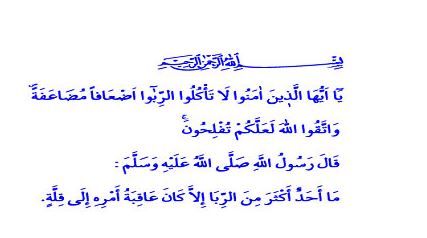 بِسْمِ اللهِ الرَّحْمٰنِ الرَّحِيمِ
يَٓا اَيُّهَا الَّذ۪ينَ اٰمَنُوا لَا تَأْكُلُوا الرِّبٰٓوا اَضْعَافاً مُضَاعَفَةًۖ
وَاتَّقُوا اللّٰهَ لَعَلَّكُمْ تُفْلِحُونَۚ
قَالَ رَسُولُ اللَّهِ صَلَّى اللَّهُ عَلَيْهِ وَسَلَّمَ :
مَا أَحَدٌ أَكْثَرَ مِنَ الرِّبَا إِلاَّ كَانَ عَاقِبَةُ أَمْرِهِ إِلَى قِلَّةٍ.